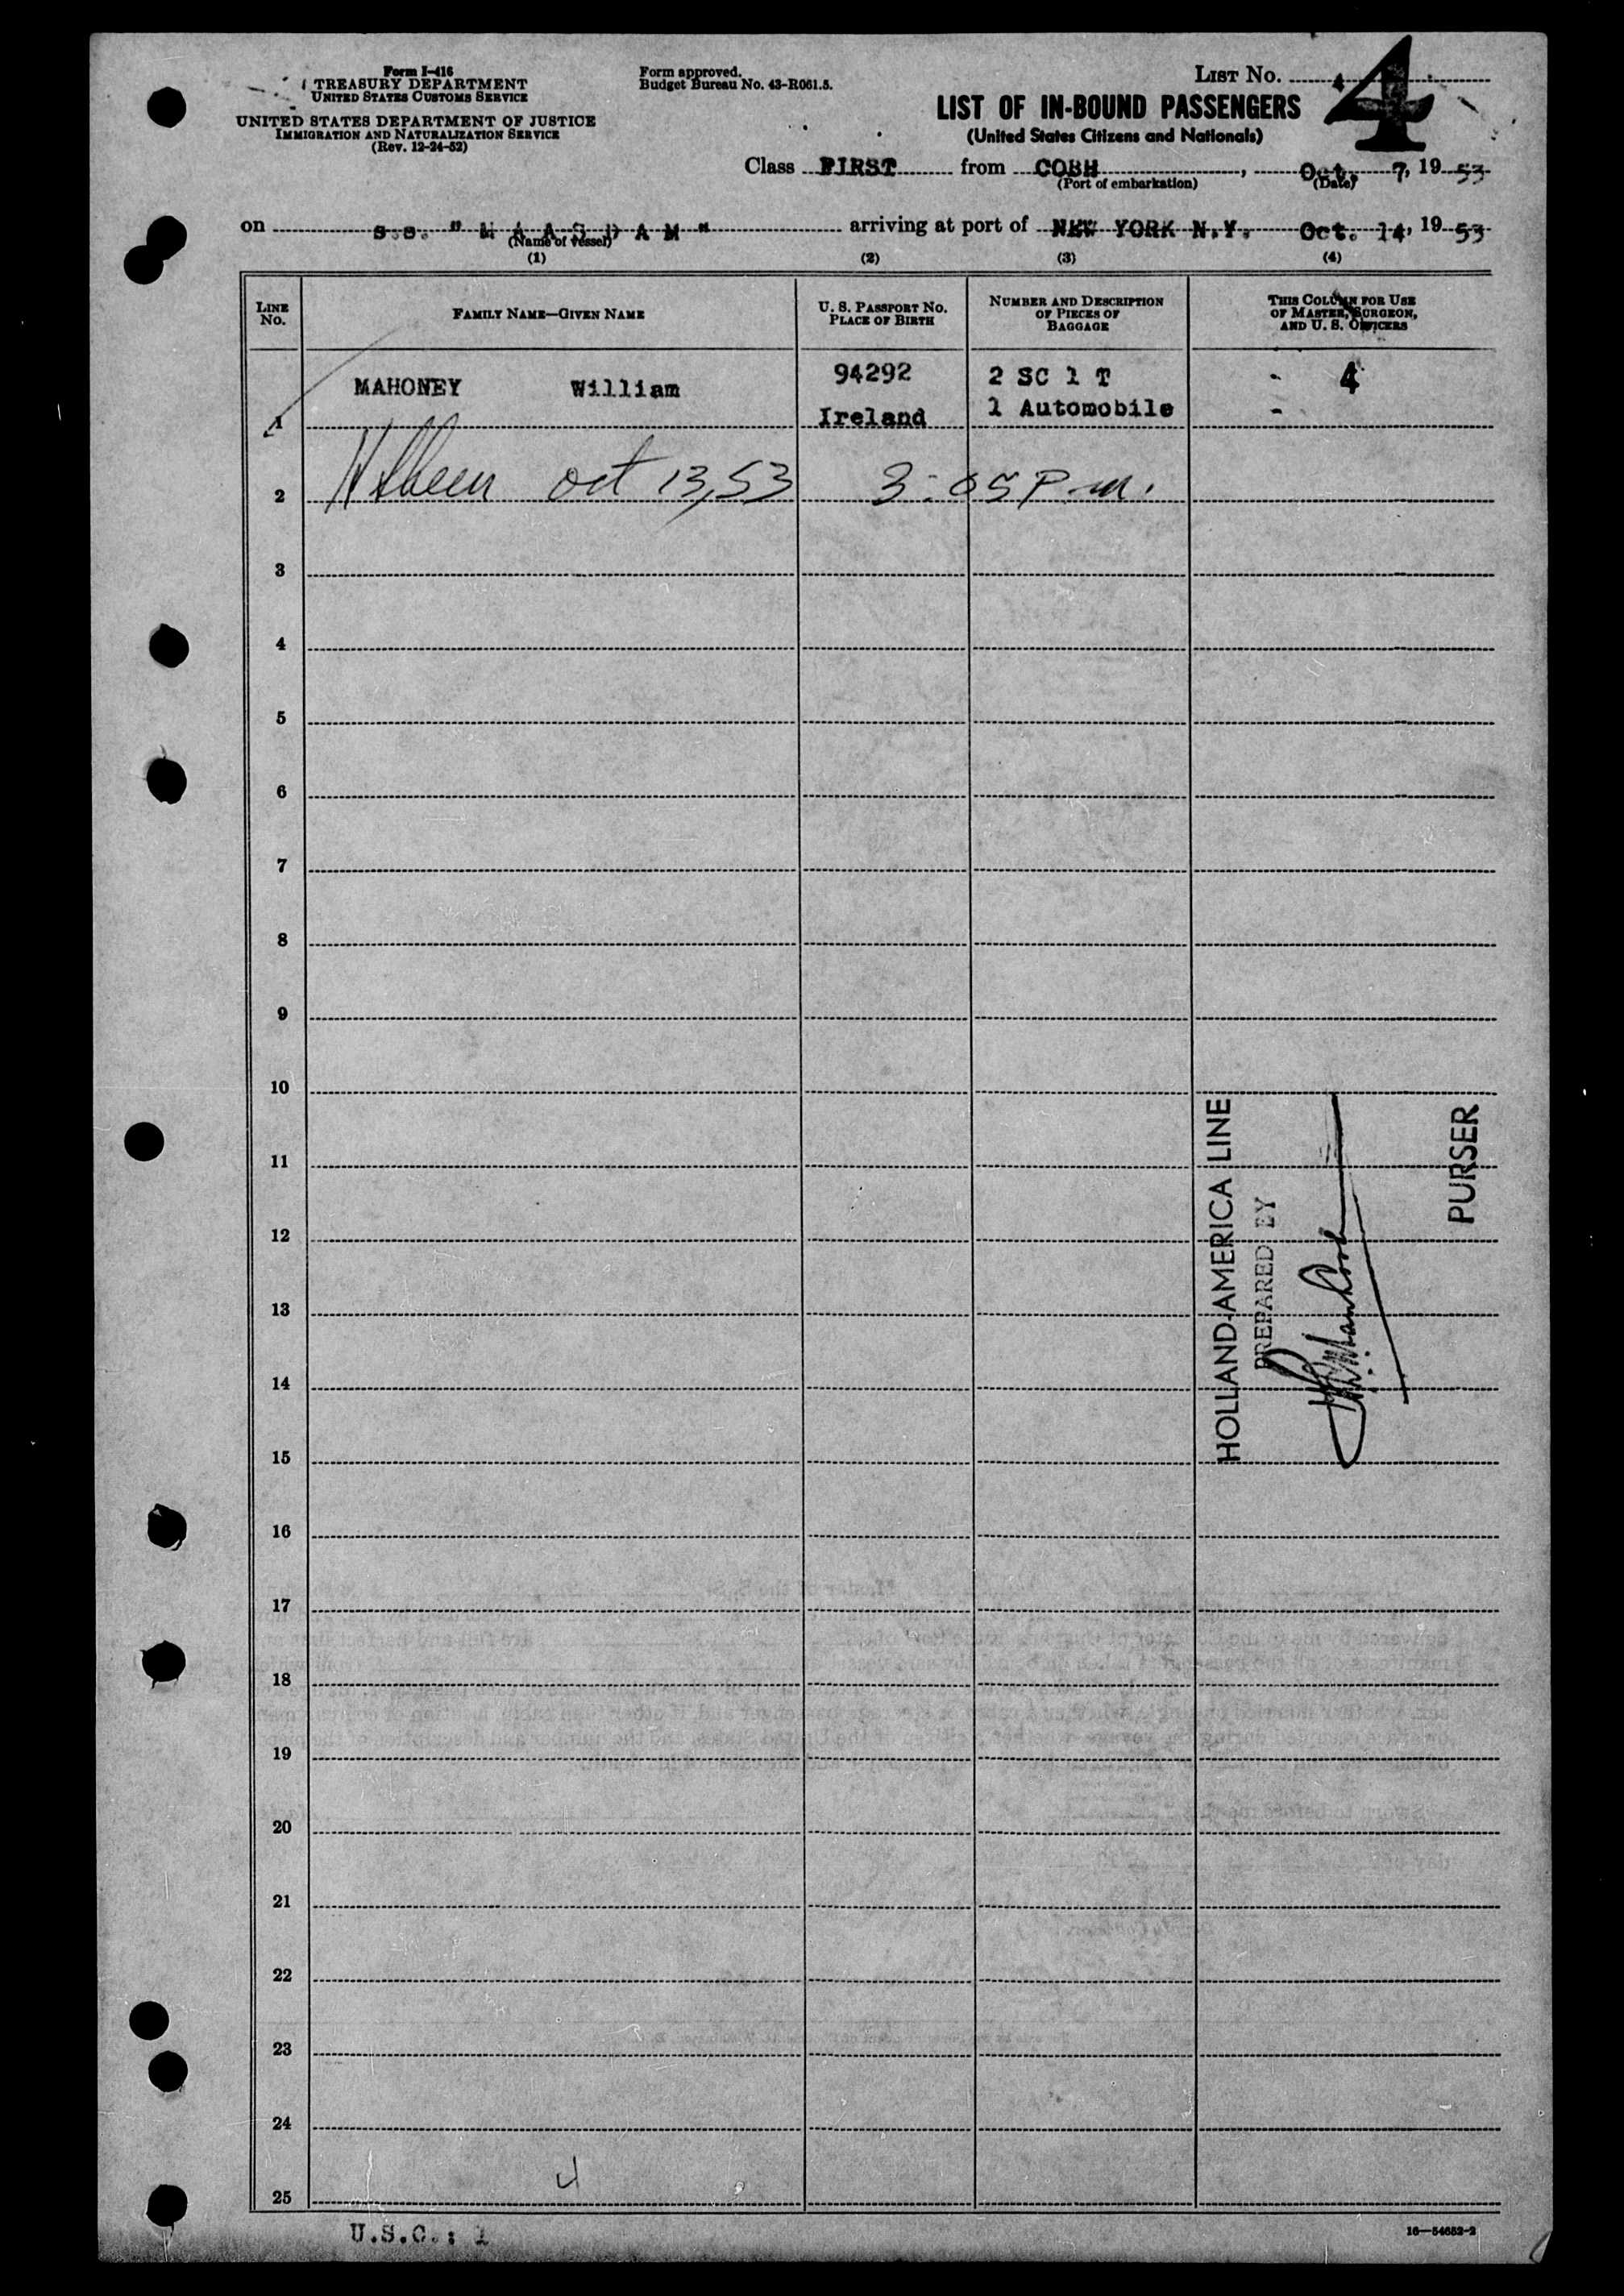 Form I-416
TREASURY DEPARTMENT
UNITED STATES CUSTOMS SERVICE
UNITED STATES DEPARTMENT OF JUSTICE
IMMIGRATION AND NATURALIZATION SERVICE
(Rev. 12-24-52)
Form approved.
Budget Bureau No. 43-R061.5.
LIST No. 4
4
LIST OF IN-BOUND PASSENGERS
(United States Citizens and Nationals)
Class FIRST from COBH, Oct. 7, 1953
(Port of embarkation) (Date)
on s.s. "MAASDAM" arriving at port of NEW YORK N.Y. Oct. 14, 1953
(Name of vessel)
(1) (2) (3) (4)
LINE NO. FAMILY NAME—GIVEN NAME U. S. PASSPORT NO. PLACE OF BIRTH NUMBER AND DESCRIPTION OF PIECES OF BAGGAGE THIS COLUMN FOR USE OF MASTER, SURGEON, AND U. S. OFFICERS
MAHONEY William 94292 2 SC 1 T - 4
1 Ireland 1 Automobile -
2 Oct 13, 53 3:05 P.m.
3
4
5
6
7
8
9
10
11
12
13
14
15
16
17
18
19
20
21
22
23
24
4
25
HOLLAND-AMERICA LINE
PREPARED BY
PURSER
U.S.C.: 1
16—54652-2